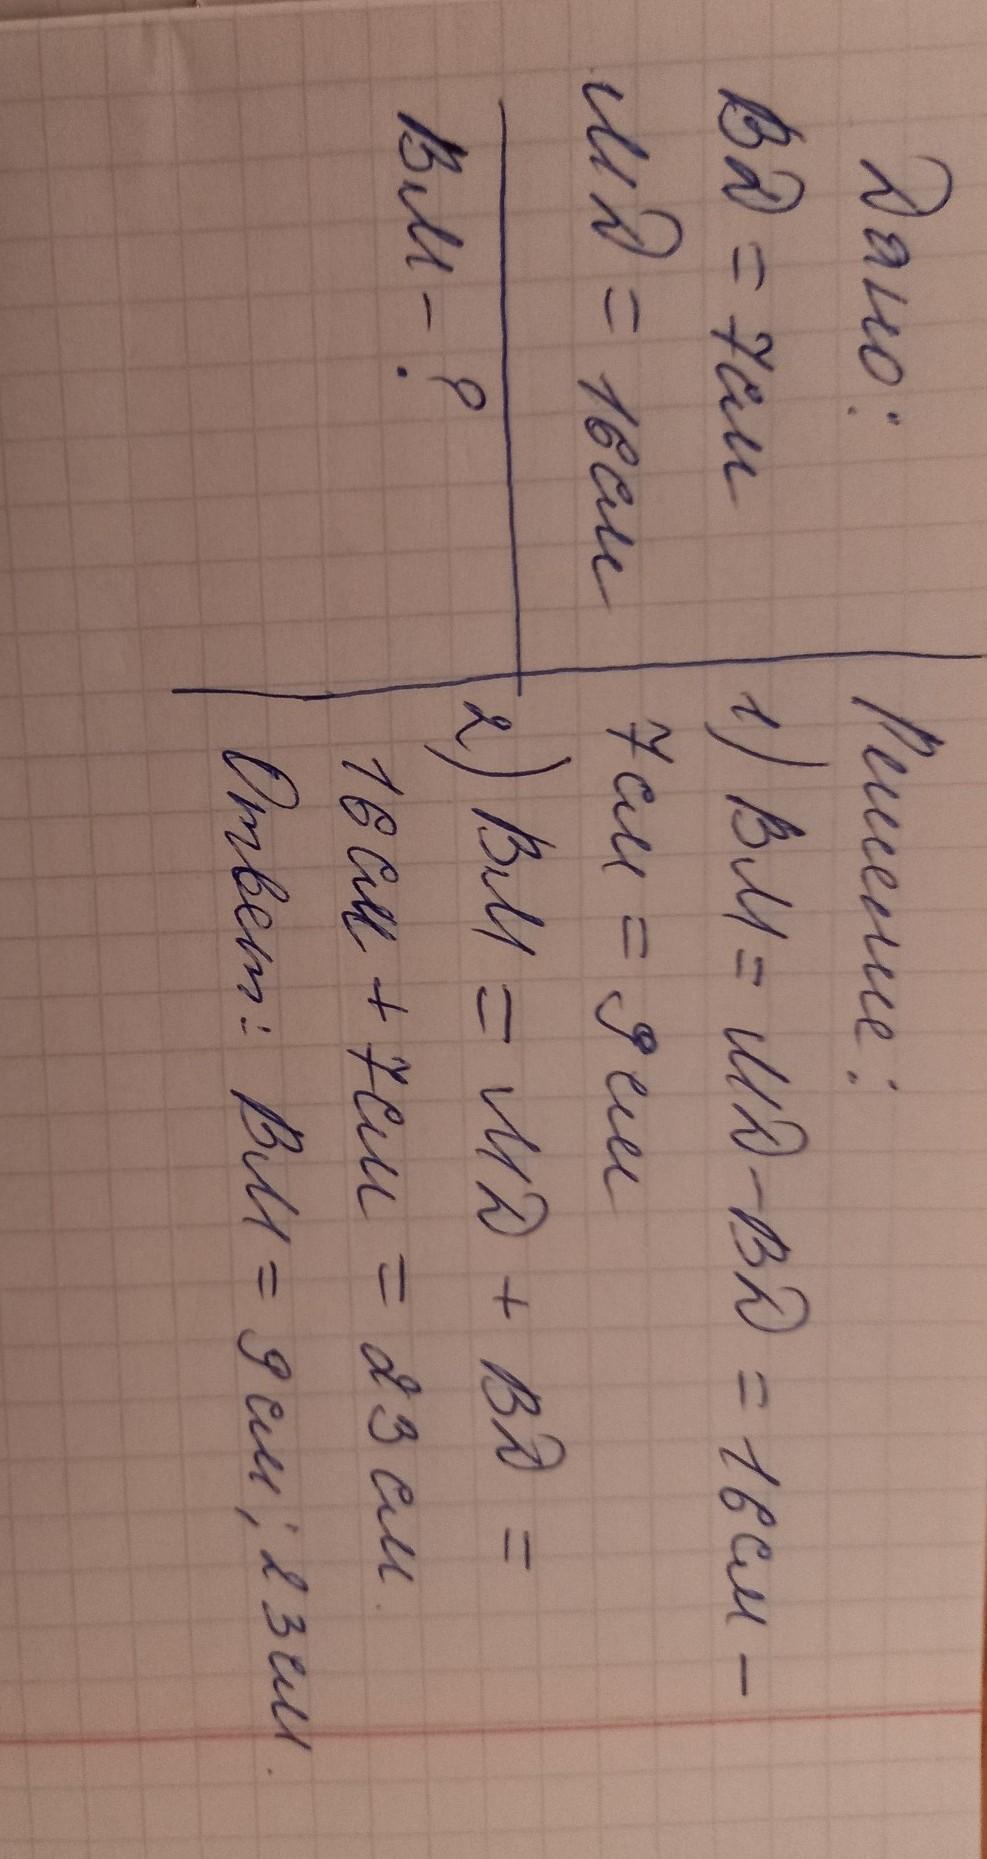 Дано:
ВД = 7см
МД = 16см
ВМ - ?
Решение:
1) ВМ = МД - ВД = 16см -
7см = 9см
2) ВМ = МД + ВД =
16см + 7см = 23см.
Ответ: ВМ = 9см; 23см.